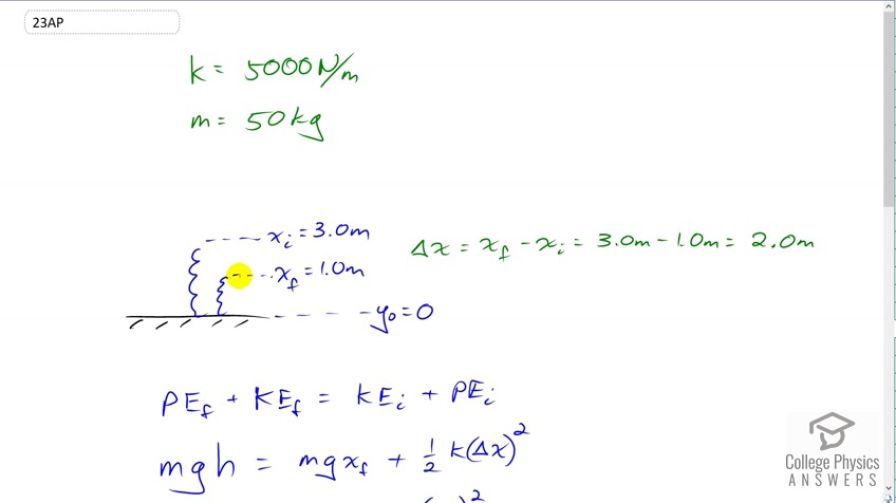 23AP
k = 5000 N/m
m = 50 kg
x_i = 3.0m
Δx = x_f − x_i = 3.0m − 1.0m = 2.0m
x_f = 1.0m
y₀ = 0
PE_f + KE_f = KE_i + PE_i
mgh = mgx_f + ½ k(Δx)²
College Physics
ANSWERS